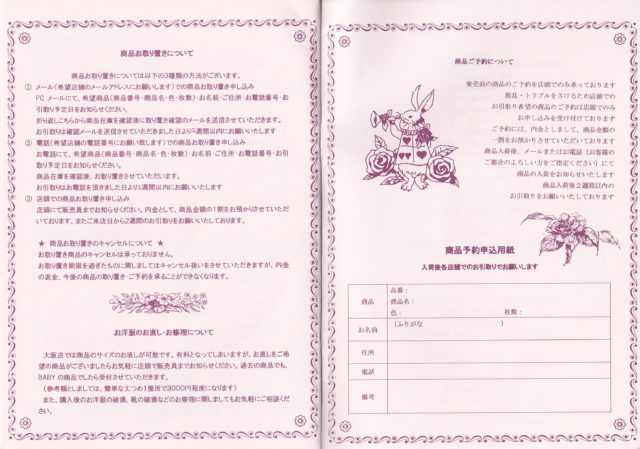 商品お取り置きについて
商品お取り置きについては以下の3種類の方法がございます。
① メール(希望店舗のメールアドレスにお願いします)での商品お取り置き申し込み
PC メールにて、希望商品(商品番号・商品名・色・枚数)・お名前・ご住所・お電話番号・お
引取り予定日をお知らせください。
折り返しこちらから商品在庫を確認後に取り置き確認のメールを送信させていただきます。
お引取りは確認メールを送信させていただきました日より2週間以内にお願いいたします
② 電話(希望店舗の電話番号にお願い致します)での商品お取り置き申し込み
お電話にて、希望商品(商品番号・商品名・色・枚数)・お名前・ご住所・お電話番号・お引
取り予定日をお知らせください。
商品在庫を確認後、お取り置きさせていただいます。
お引取りはお電話を頂きました日より2週間以内にお願いいたします
③ 店頭での商品お取り置き申し込み
店頭にて販売員までお知らせください。内金として、商品金額の1割をお預かりさせていただい
ております。またご来店日から2週間のお引取りをお願いいたしております。
★ 商品お取り置きのキャンセルについて ★
お取り置き商品のキャンセルは承っておりません。
お取り置き期限を過ぎたものに関しましてはキャンセル扱いをさせていただきますが、内金
の返金、今後の商品の取り置き・ご予約を承ることができなくなります。
お洋服のお直し・お修理について
大阪店では商品のサイズのお直しが可能です。有料となってしまいますが、お直しをご希
望の商品がございましたらお気軽に店頭で販売員までお知らせください。過去の商品でも、
BABY の商品でしたら受付させていただきます。
(参考額としましては、簡単な丈つめ1箇所で3000円程度になります)
また、購入後のお洋服の破損、靴の破損などのお修理に関しましてもお気軽にご相談くだ
さい。
商品ご予約について
発売前の商品のご予約を店頭でのみ承っております
混乱・トラブルをさけるため店頭での
お引取り希望の商品のご予約は店頭でのみ
お申し込みを受け付けております
ご予約には、内金としまして、商品金額の
一割をお預かりさせていただいております
商品入荷後、メールまたはお電話(お客様の
ご都合のよろしい方をご指定ください)にて
商品の入荷をお知らせいたします
商品入荷後2週間以内の
お引取りをお願いいたしております
商品予約申込用紙
入荷後各店舗でのお引取りでお願いします
商品
品番:
商品名:
色: 枚数:
お名前
(ふりがな )
住所
電話
備考